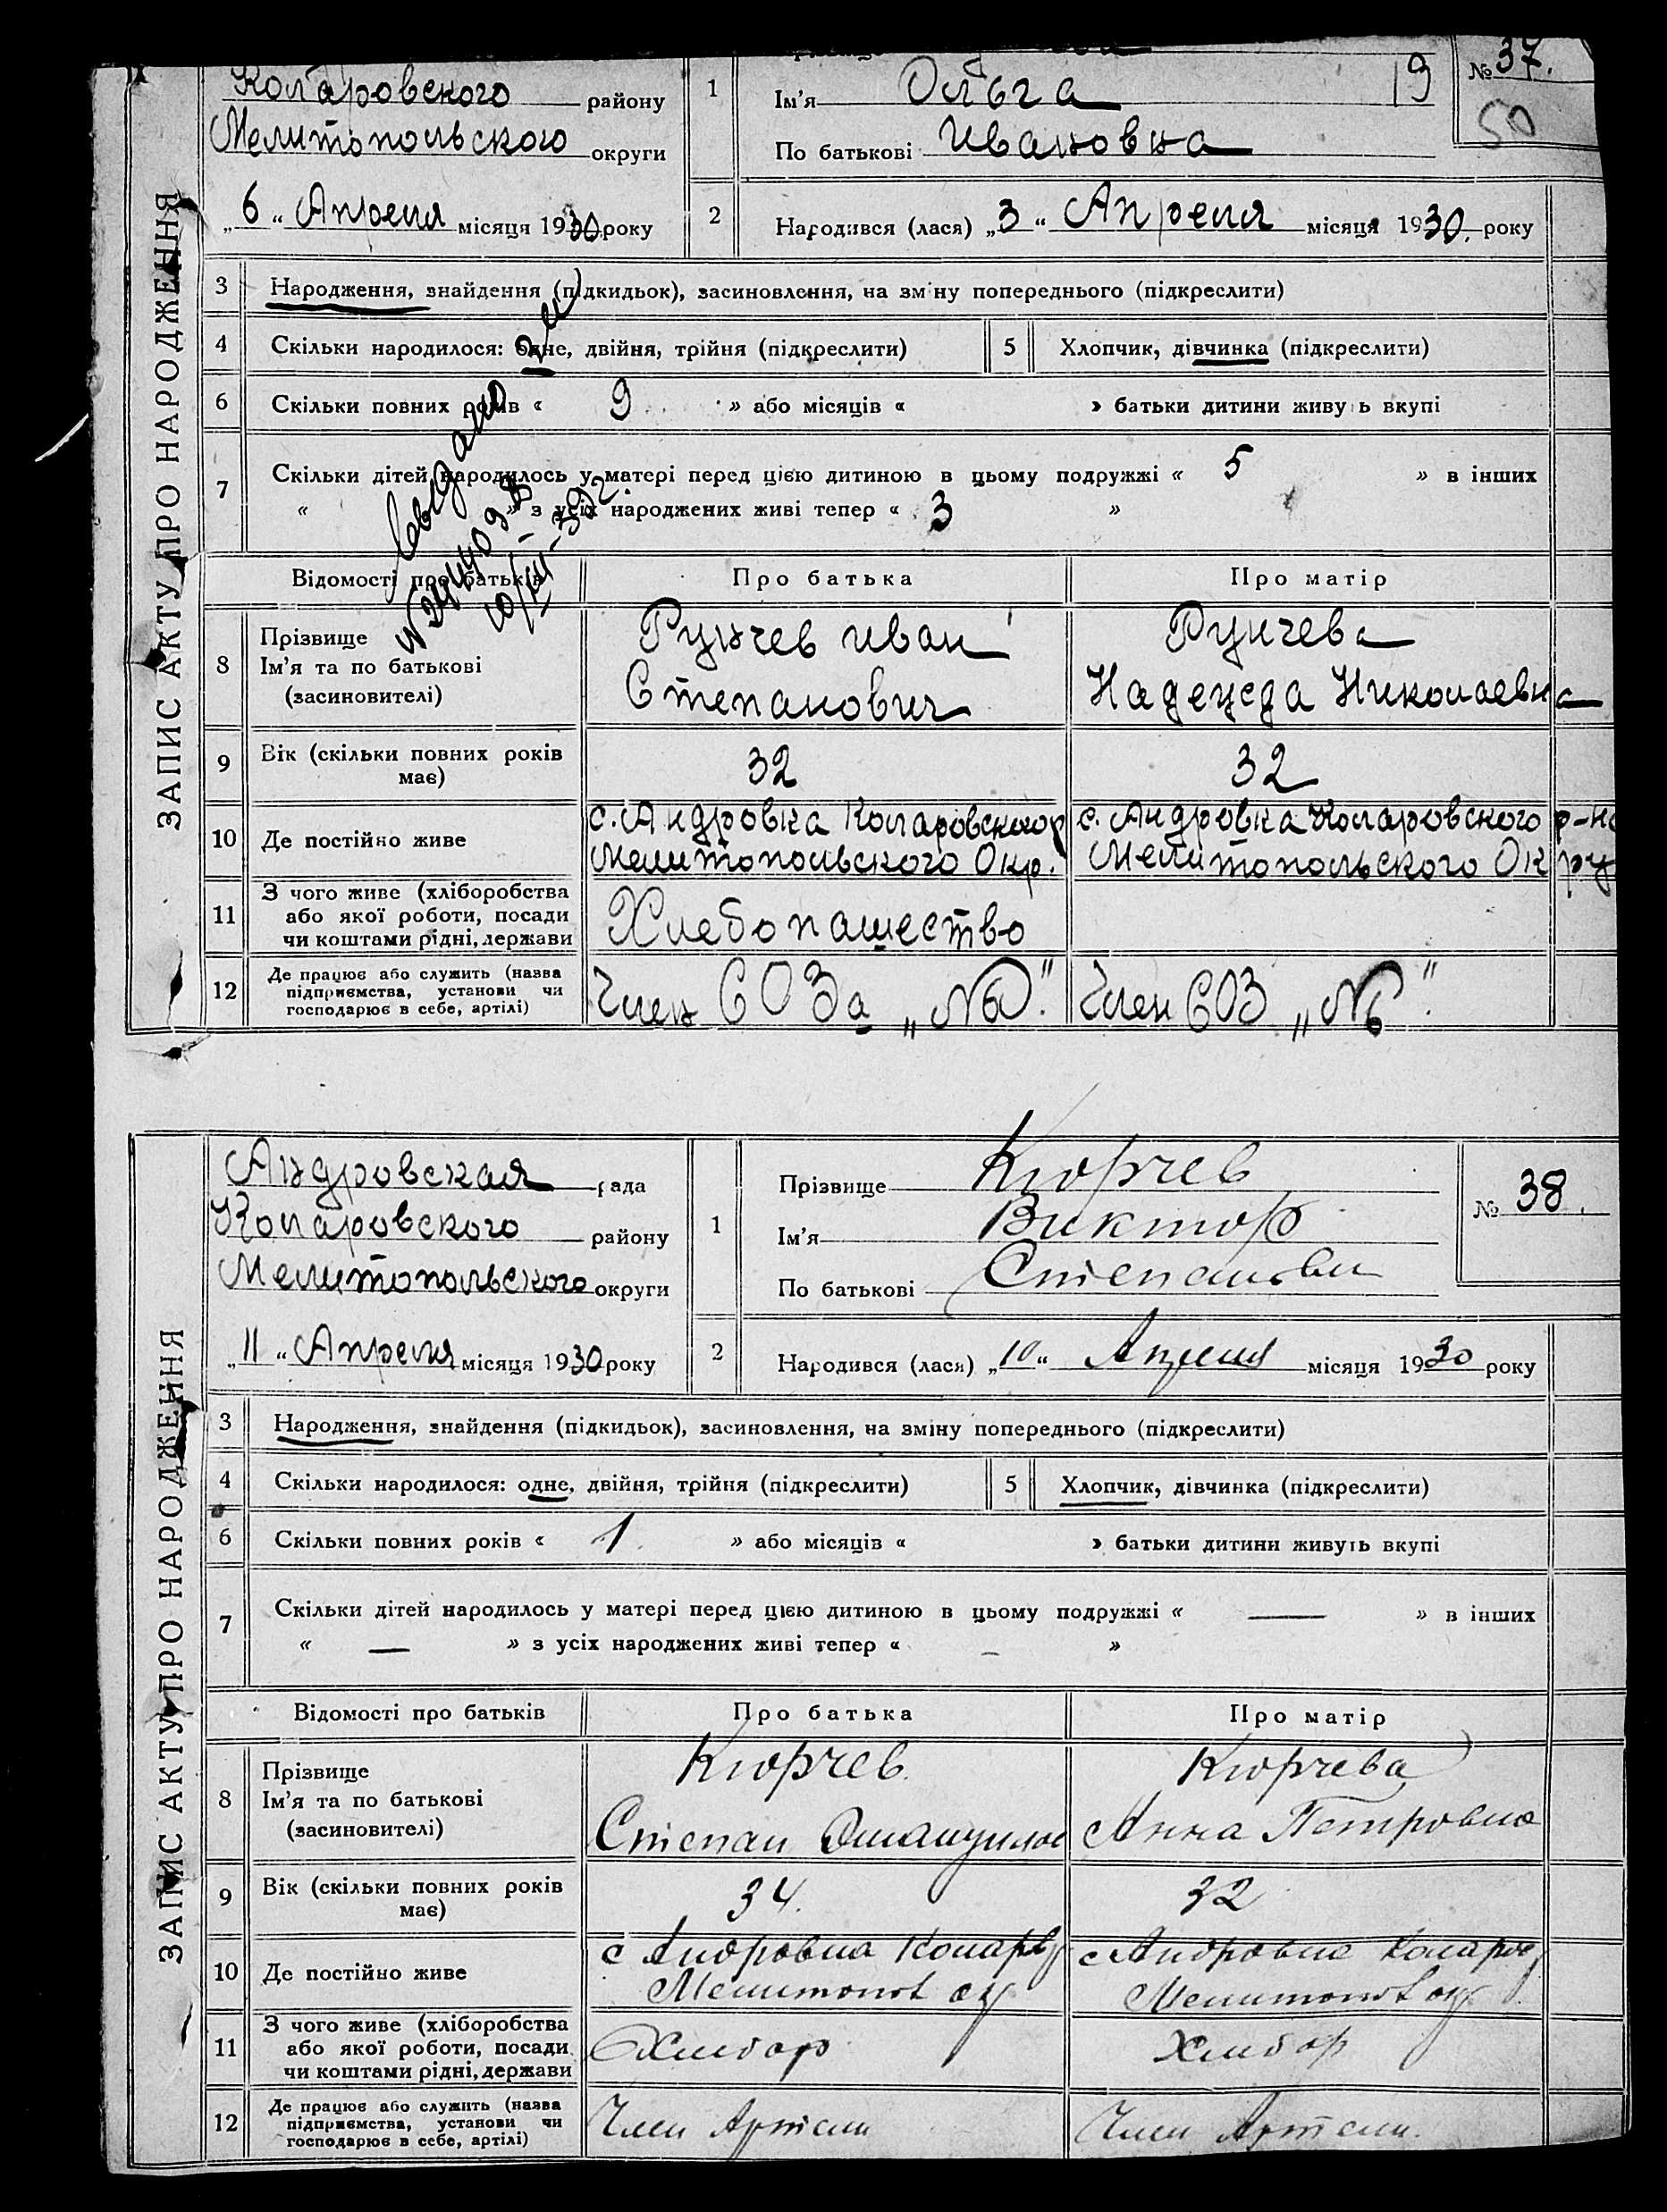 ЗАПИС АКТУ ПРО НАРОДЖЕННЯ
Коларовского району
Мелитопольского округи
„6“ Апреля місяця 1930 року
1
Ім'я Ольга 19
По батькові Ивановна
№ 37.
50
2 Народився (лася) „3“ Апреля місяця 1930. року
3 Народження, знайдення (підкидьок), засиновлення, на зміну попереднього (підкреслити)
4 Скільки народилося: одне, двійня, трійня (підкреслити) 5 Хлопчик, дівчинка (підкреслити)
6 Скільки повних років « 9 » або місяців « » батьки дитини живуть вкупі
7 Скільки дітей народилось у матері перед цією дитиною в цьому подружжі « 5 » в інших
« » з усіх народжених живі тепер « 3 »
Відомості про батьків Про батька Про матір
8 Прізвище
Ім'я та по батькові
(засиновителі)
Рунчев Иван
Степанович
Рунчева
Надежда Николаевна
9 Вік (скільки повних років
має)
32 32
10 Де постійно живе
с. Андровка Коларовского р
Мелитопольского Окр.
с. Андровка Коларовского р-на
Мелитопольского Окру
11 З чого живе (хліборобства
або якої роботи, посади
чи коштами рідні, держави
Хлебопашество
12 Де працює або служить (назва
підприємства, установи чи
господарює в себе, артілі)
Член СОЗа
Член СОЗ
ЗАПИС АКТУ ПРО НАРОДЖЕННЯ
Андровская рада
Коларовского району
Мелитопольского округи
„11“ Апреля місяця 1930 року
1
Прізвище Кюрчев
Ім'я Виктор
По батькові Степанови
№ 38.
2 Народився (лася) „10“ Апреля місяця 1930 року
3 Народження, знайдення (підкидьок), засиновлення, на зміну попереднього (підкреслити)
4 Скільки народилося: одне, двійня, трійня (підкреслити) 5 Хлопчик, дівчинка (підкреслити)
6 Скільки повних років « 1 » або місяців « » батьки дитини живуть вкупі
7 Скільки дітей народилось у матері перед цією дитиною в цьому подружжі « — » в інших
« — » з усіх народжених живі тепер « – »
Відомості про батьків Про батька Про матір
8 Прізвище
Ім'я та по батькові
(засиновителі)
Кюрчев
Степан
Кюрчева
Анна Петровна
9 Вік (скільки повних років
має)
34. 32
10 Де постійно живе
с Андровка
с Андровка
11 З чого живе (хліборобства
або якої роботи, посади
чи коштами рідні, держави
Хлибор Хлибор
12 Де працює або служить (назва
підприємства, установи чи
господарює в себе, артілі)
Член Артели
Член Артели.